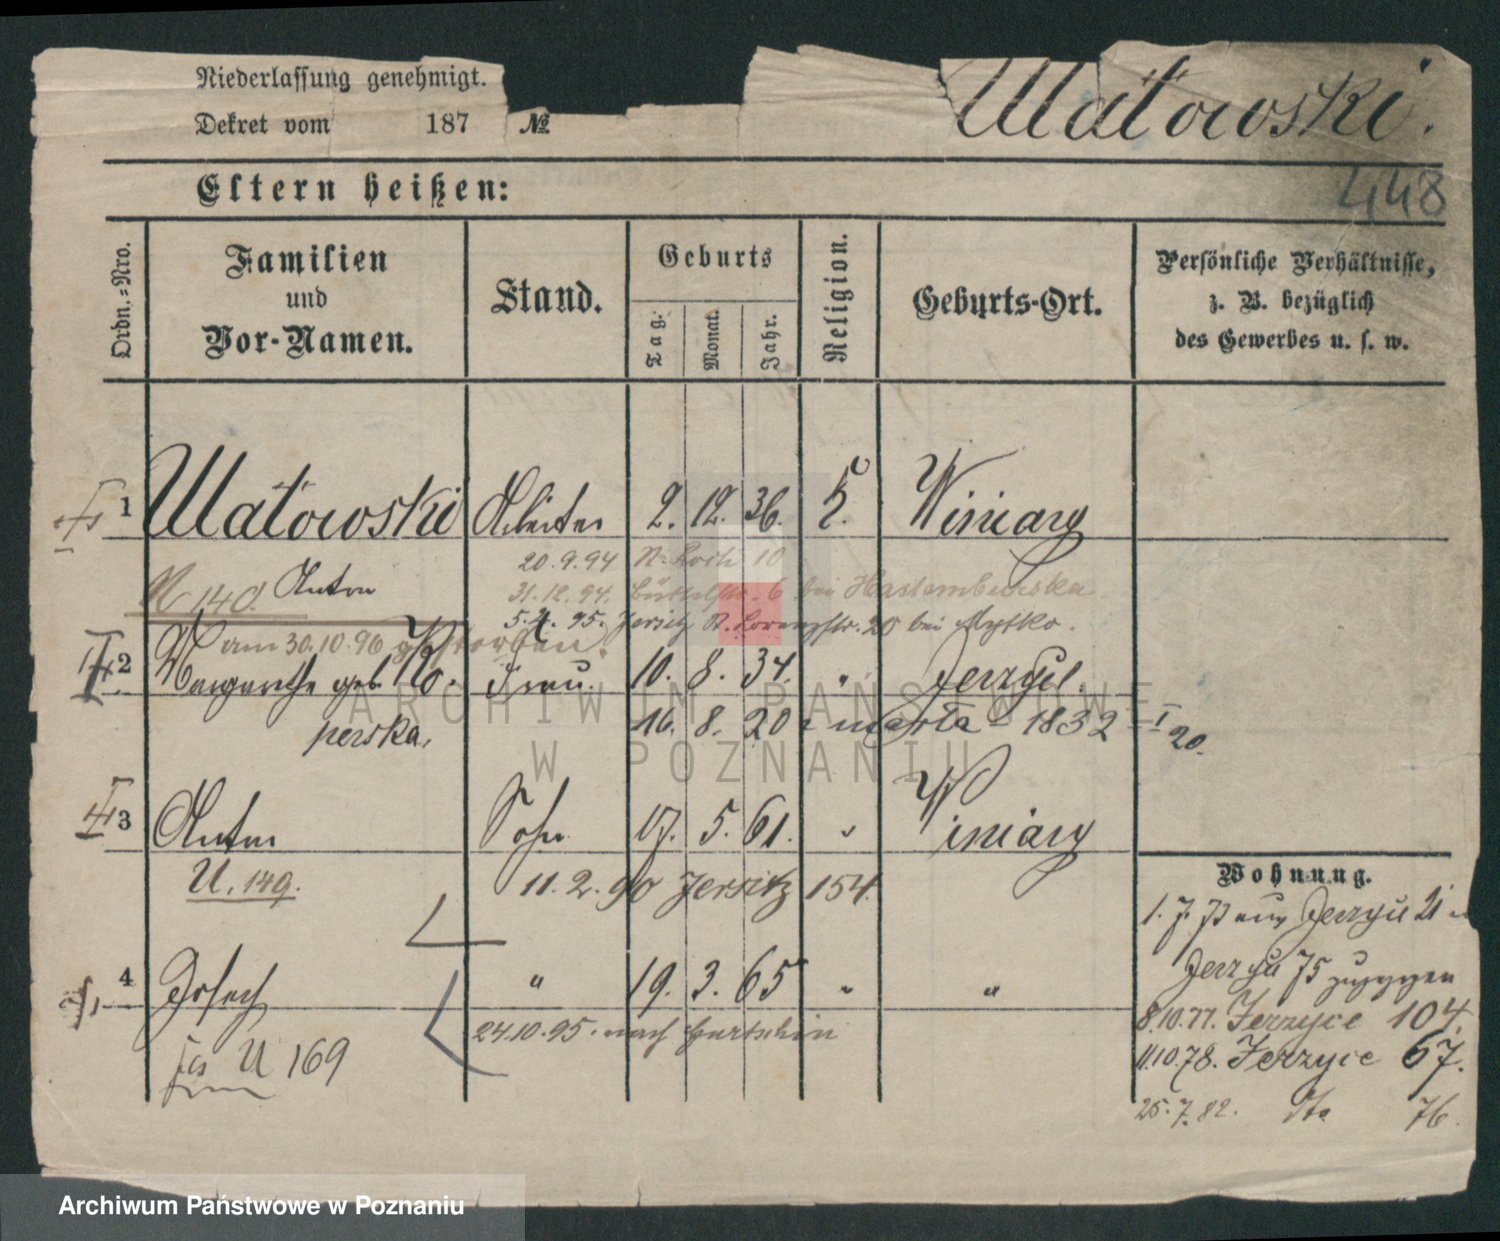 Niederlassung genehmigt.
Dekret vom 187 №
Matowski.
448
Eltern heißen:
Ordn.-Nro.
Familien und Vor-Namen.
Stand.
Geburts
Tag. Monat. Jahr.
Religion.
Geburts-Ort.
Persönliche Verhältnisse,
z. B. bezüglich
des Gewerbes u. s. w.
1 Matowski Arbeiter 2. 12. 36. K. Winiary
20.9.94 10
U 140. Anton
31.12.94. 6 bei
5. 95. Jersitz Lorenzstr. 20 bei Mytko.
am 30.10.96 gestorben.
2 Margarethe geb. Ko- Frau. 10. 8. 34. " Jerzyce.
perska. 16. 8. 20 1832 20.
3 Anton Sohn 17. 5. 61. " Winiary
U. 149. 11.2.90 Jersitz 154.
Wohnung.
1. 7. 75 aus Jerzyce 21 n
Jerzyce 75 zugezogen
4 Joseph " 19. 3. 65 " "
8.10.77. Jerzyce 104.
24.10.95. nach Gurtschin
11.10.78. Jerzyce 67.
U 169
25.7.82. dto 76.
ARCHIWUM PAŃSTWOWE
W POZNANIU
Archiwum Państwowe w Poznaniu